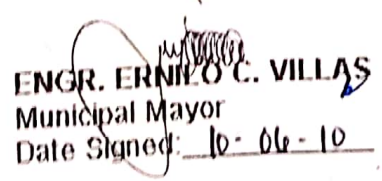 ENGR. ERNILO C. VILLAS
Municipal Mayor
Date Signed: 10-06-10